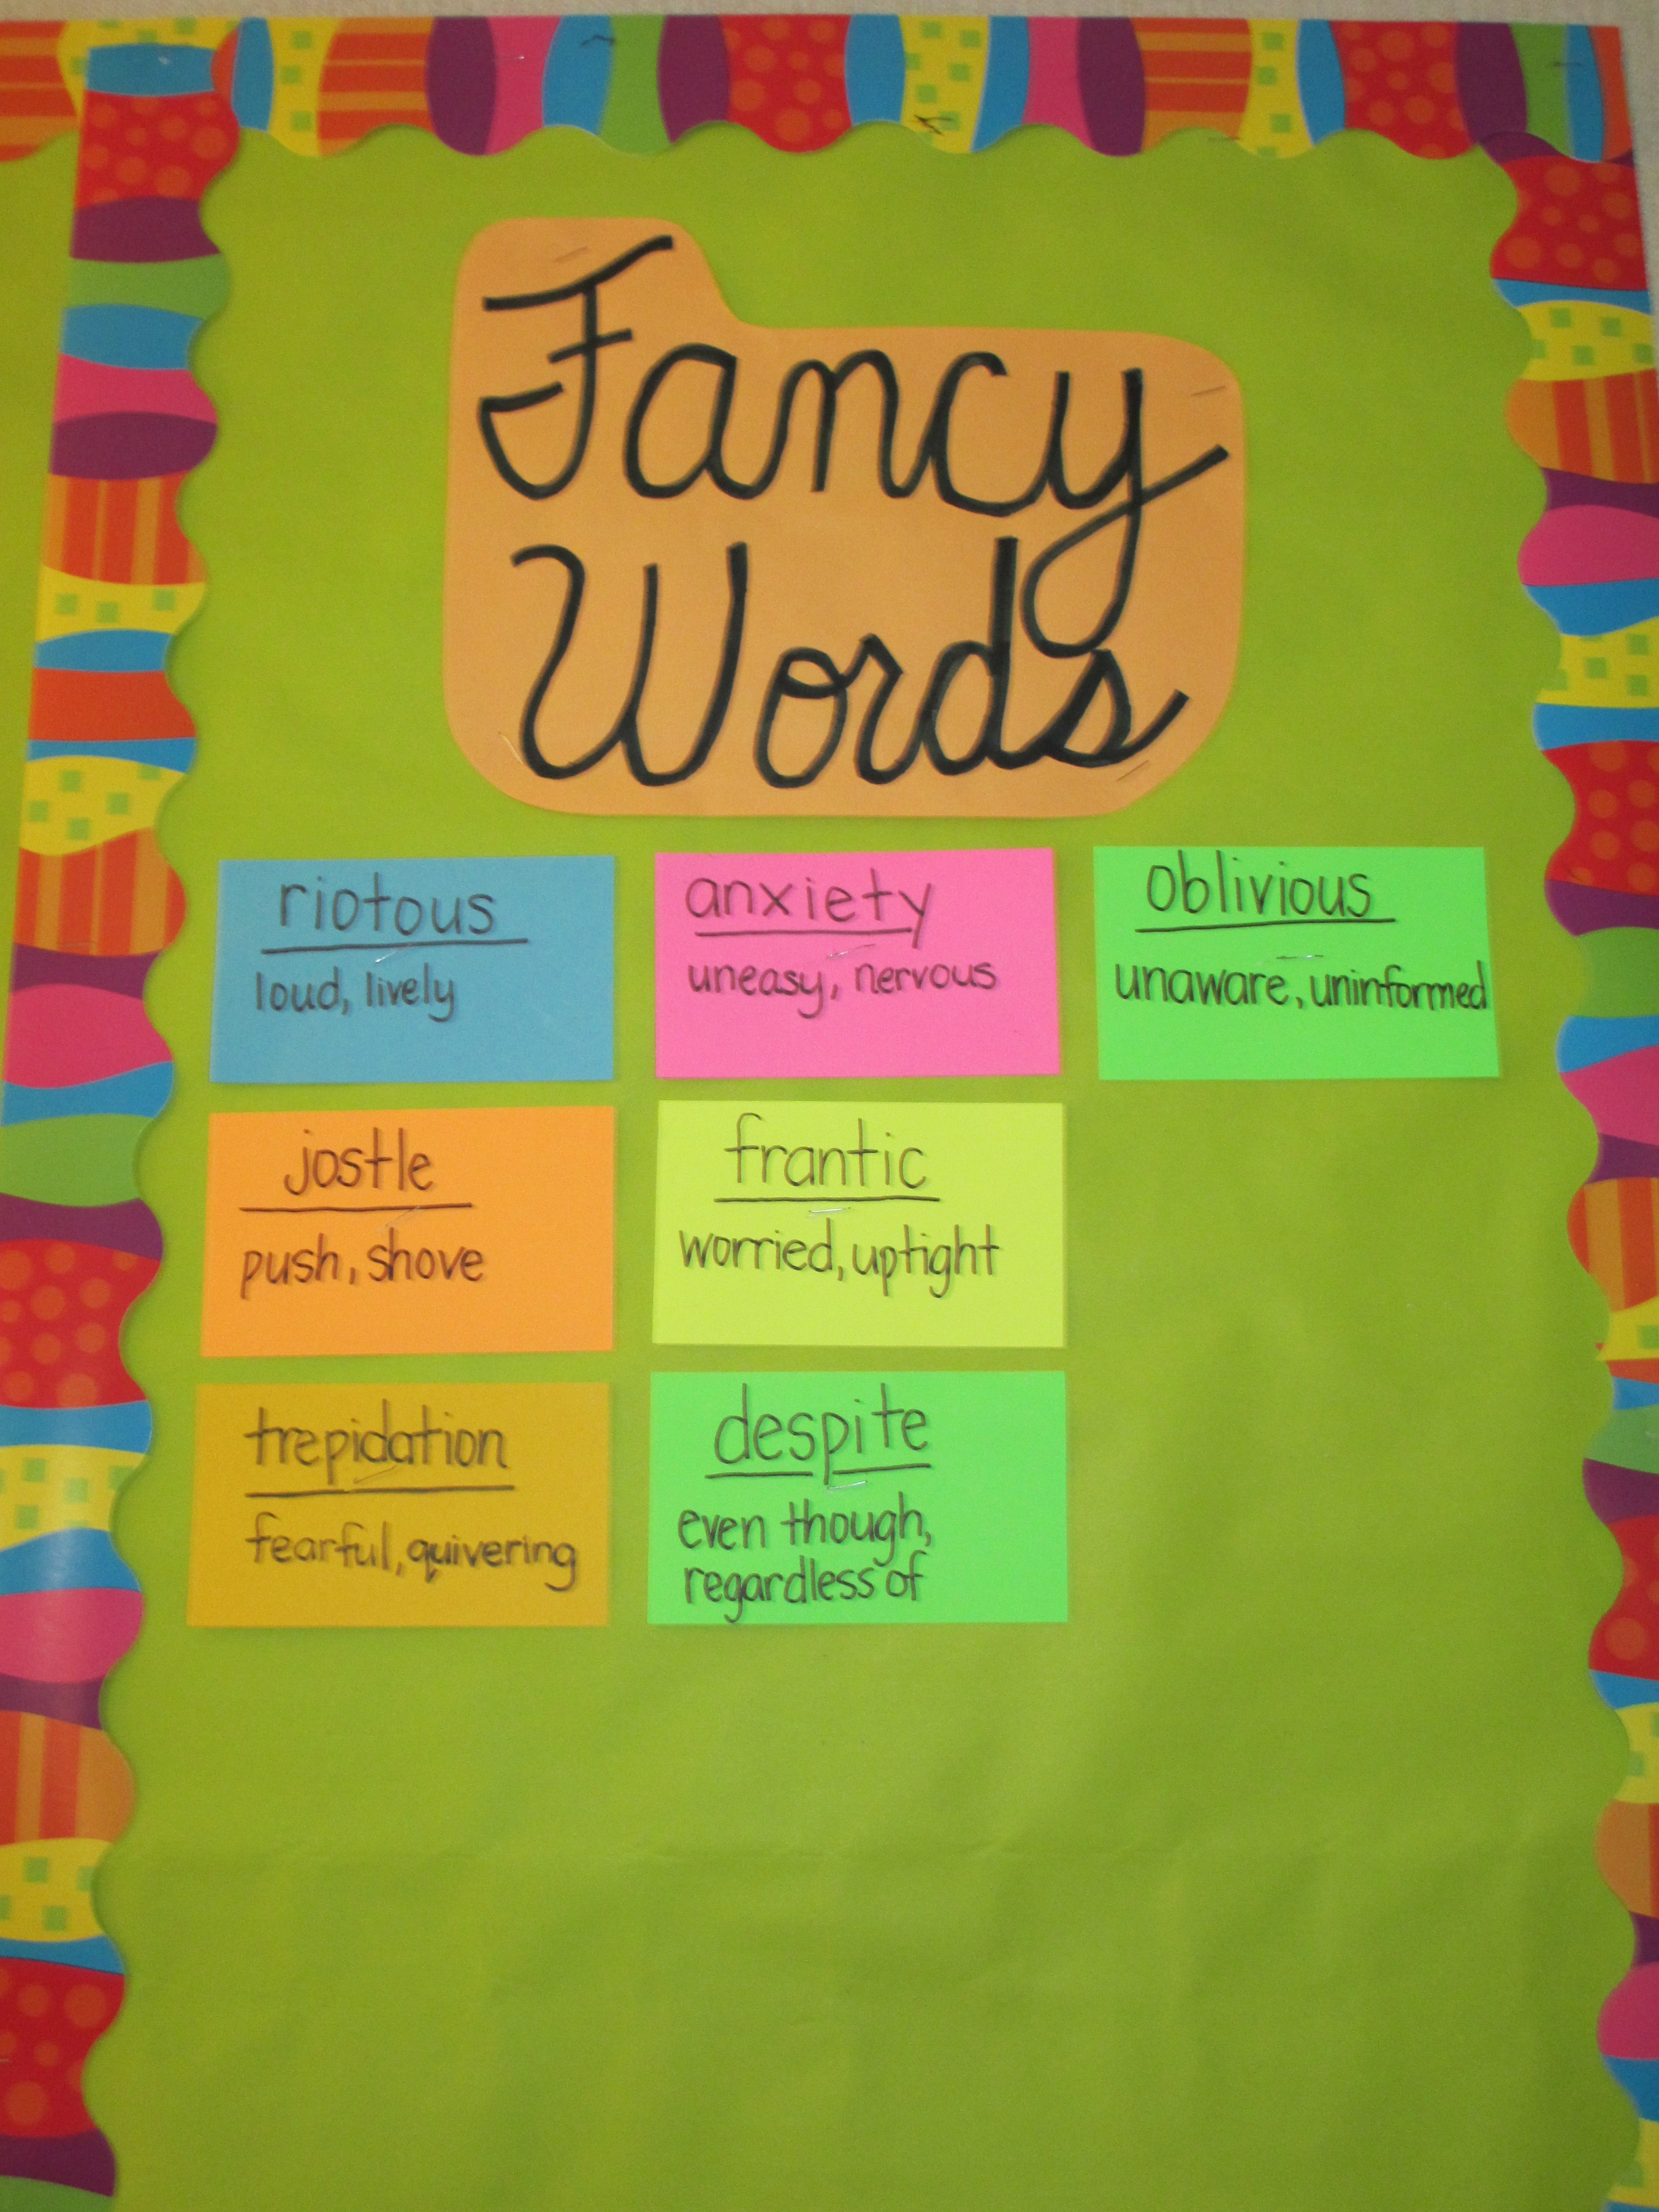 Fancy
Words
riotous
loud, lively
anxiety
uneasy, nervous
oblivious
unaware, uninformed
jostle
push, shove
frantic
worried, uptight
trepidation
fearful, quivering
despite
even though,
regardless of